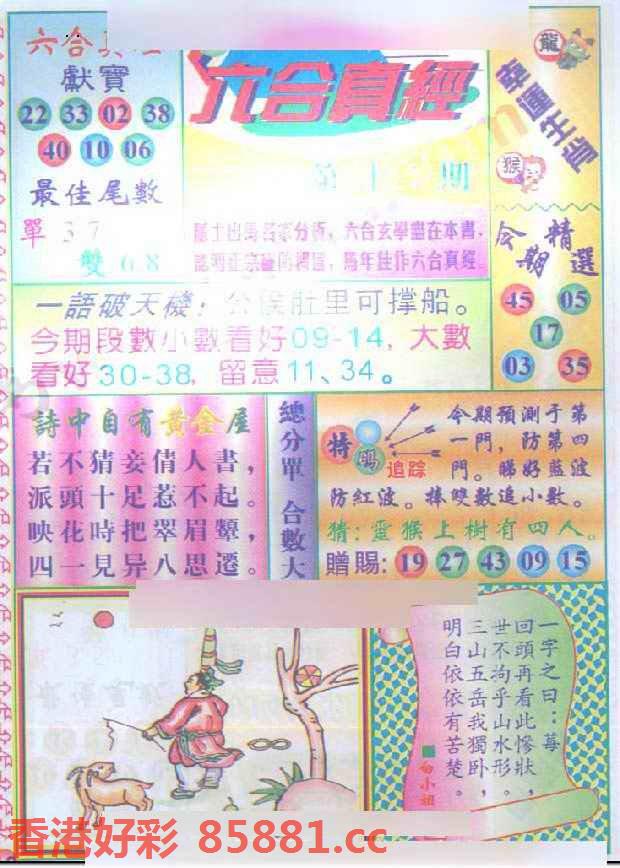 六合真
獻寶
22 33 02 38
40 10 06
最佳尾數
單 37
雙 68
六合真經
期
龍
幸運生肖
猴
今期精選
45 05
17
03 35
六合玄學盡在本書.
馬年佳作六合真經
一語破天機:公侯肚里可撐船。
今期段數小數看好09-14,大數
看好30-38,留意11、34。
詩中自有黃金屋
若不猜妾倩人書,
派頭十足惹不起。
映花時把翠眉顰,
四一見异八思遷。
總分單 合數大
特碼
追踪
今期預測于第
一門,防第四
門。睇好藍波
防紅波。捧雙數追小數。
猜:靈猴上樹有四人。
贈賜:19 27 43 09 15
一字之曰:莓
回頭再看此慘狀,
世不拘乎山水形。
三山五岳我獨卧,
明白依依有苦楚。
白小姐
香港好彩 85881.cc